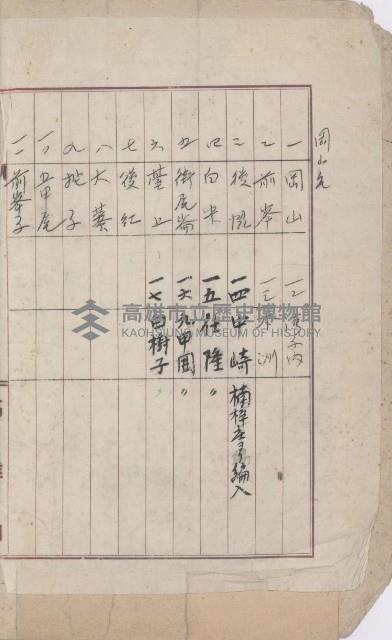 岡山免
一 岡山
二 前峯
三 後協
四 白米
五 街尾崙
六 台上
七 後紅
八 大藔
九 挑子
一〇 五甲尾
一一 前峯子
一二
一三 洲
一四 中崎 楠梓庄ヨリ編入
一五 仕隆 〃
一六 九甲圍 〃
一七 白樹子 〃
高雄市立歷史博物館
KAOHSIUNG MUSEUM OF HISTORY